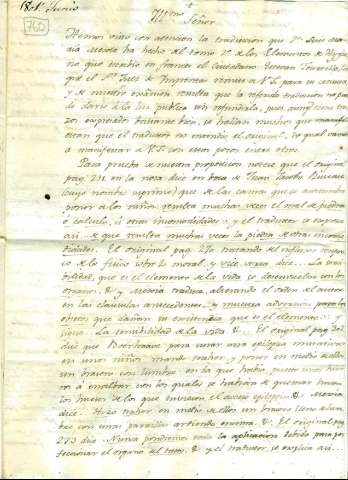 1801 Junio
760
Yllmo.
Señor
Hemos visto con atencion la traduccion que Dn. Luis
Mexia ha hecho del tomo 2º de los Elementos de Higiene
que escribió en frances el Ciudadano Esteban Tourtelle,
que el Sr. Juez de Imprentas remite a V.S. para su censura,
y de nuestro examen resulta que la referida traduccion no pue
de darse a la luz publica sin refundirla, pues aunque tiene tro
zos expresados bastante bien, se hallan muchos que manifi
estan que el traductor no entendió el original, lo qual vamos
a manifestar a V.S. con unos pocos entre otros.
Para prueba de nuestra proposicion note que el original
pag. 211 en la nota dice en boca de Juan
(cuyo nombre suprime) que de las camas que se acostumbra
poner a los niños resulta muchas veces el mal de piedra
o calculo, u otras incomodidades. y el traductor se expresa
asi: de que resultan muchas veces la piedra y otras incomo
didades. El original pag. 270 tratando del influxo
co de lo fisico sobre lo moral, y vice versa dice: La sensi
bilidad, que es el elemento de la vida se desenvuelve con los
organos. & y Mexia traduce alterando el orden del autor
en las clausulas antecedentes, y nuestra adversion para los
obgetos que dañan su existencia que es el elemento
La sensibilidad de la vida &. El original pag.
dice que Boerhaave para curar una epilepsia imitativa
en unos niños mandó traher, y poner en medio de ellos
un brasero con lumbre en la que habia puesto unos hierros
con los quales se habian de quemar hasta
los huesos de los que tuviesen el acceso epileptico & Mexia
dice: Hizo traher en medio de ellos un brasero lleno de lum
bre con unas parrillas ardiendo encima. &. El original pag.
273 dice: Nunca pondremos toda la aplicacion debida para per
feccionar el organo del tacto. & y el traductor se explica asi